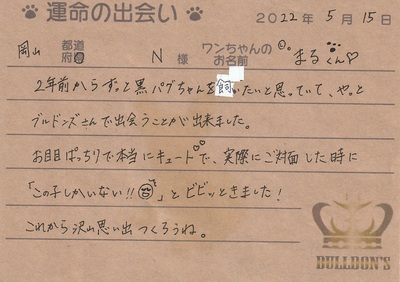 運命の出会い 2022年 5月 15日
岡山 都道府県 N 様 ワンちゃんのお名前 まるくん♡
2年前からずっと黒パグちゃんを飼いたいと思っていて、やっと
ブルドンズさんで出会うことが出来ました。
お目目ぱっちりで本当にキュートで、実際にご対面した時に
「この子しかいない!!」とビビッときました!
これから沢山思い出つくろうね。
BULLDON'S